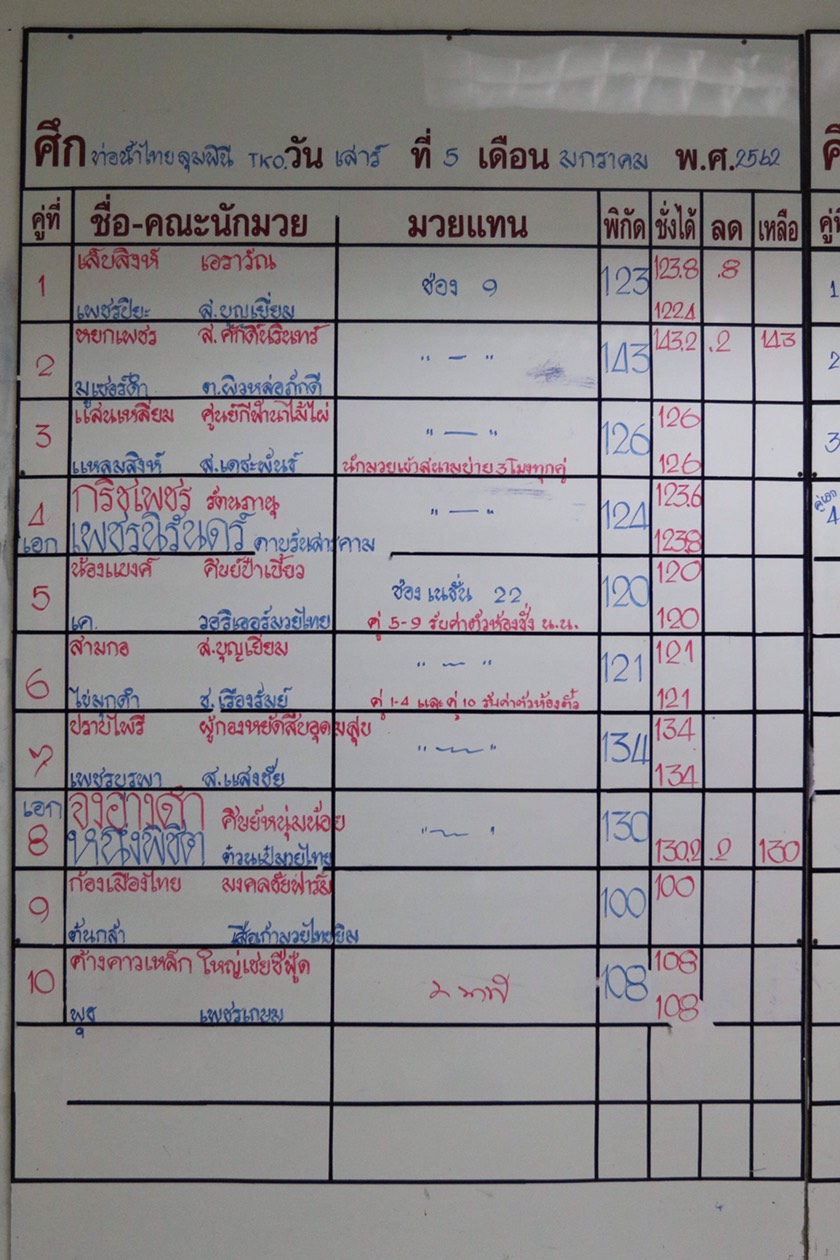 ศึก ท่อน้ำไทยลุมพินี TKO. วัน เสาร์ ที่ 5 เดือน มกราคม พ.ศ. 2562
คู่ที่ ชื่อ-คณะนักมวย มวยแทน พิกัด ชั่งได้ ลด เหลือ
1 เสือสิงห์ เอราวัณ ช่อง 9 123 123.8 .8
เพชรปิยะ ส.บุญเยี่ยม 122.4
2 หยกเพชร ส.ศักดิ์นรินทร์ " — " 143 143.2 .2 143
มูเซอร์ดำ ต.ผิวหล่อภักดี
3 แสนเหลี่ยม ศูนย์กีฬานาไม้ไผ่ " — " 126 126
แหลมสิงห์ ส.เดชะพันธ์ นักมวยเข้าสนามบ่าย 3 โมงทุกคู่ 126
4 กริชเพชร รัตนภานุ " — " 124 123.6
เอก เพชรนิรันดร์ ดาบรันสารคาม 123.8
5 น้องแบงค์ ศิษย์ป๋าเบี้ยว ช่อง เนชั่น 22 120 120
เค. วอริเออร์มวยไทย คู่ 5-9 รับค่าตัวห้องชั่ง น.น. 120
6 สามกอ ส.บุญเยี่ยม " — " 121 121
ไข่มุกดำ ช.เรืองรัมย์ คู่ 1-4 และ คู่ 10 รับค่าตัวห้องตั๋ว 121
7 ปราบไพรี ผู้กองหยัดสืบอุดมสุข " — " 134 134
เพชรบูรพา ส.แสงชัย 134
เอก องอาจศึก ศิษย์หนุ่มน้อย " — " 130
8 หนึ่งพิชิต ต้วนเป๋มวยไทย 130.2 .2 130
9 ก้องเมืองไทย มงคลชัยฟาร์ม 100 100
ต้นกล้า เสือเก่ามวยไทยยิม
10 ค้างคาวเหล็ก ใหญ่เชยซีฟู้ด 108 108
พุธ เพชรเกษม 108